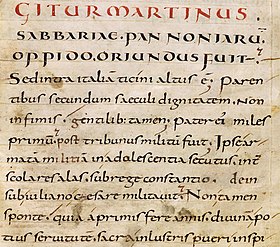 GITUR MARTINUS·
SABBARIAE·PANNONIARŪ
OPPIDO·ORIUNDUS FUIT·
Sed intra italiā ticini altus ē; Paren
tibus secundum saeculi dignitatem Non
infimis· gentilib; tamen; Pater ei' miles
primū· post tribunus militū fuit, Ipse ar
matā militiā in adolescentia secutus, int
scolares alas, sub rege constantio· dein
sub iuliano c'esare militavit; Non tamen
sponte· quia a primis fere annis· divinā po
tius servitutē· sacra inlustris pueri inspi